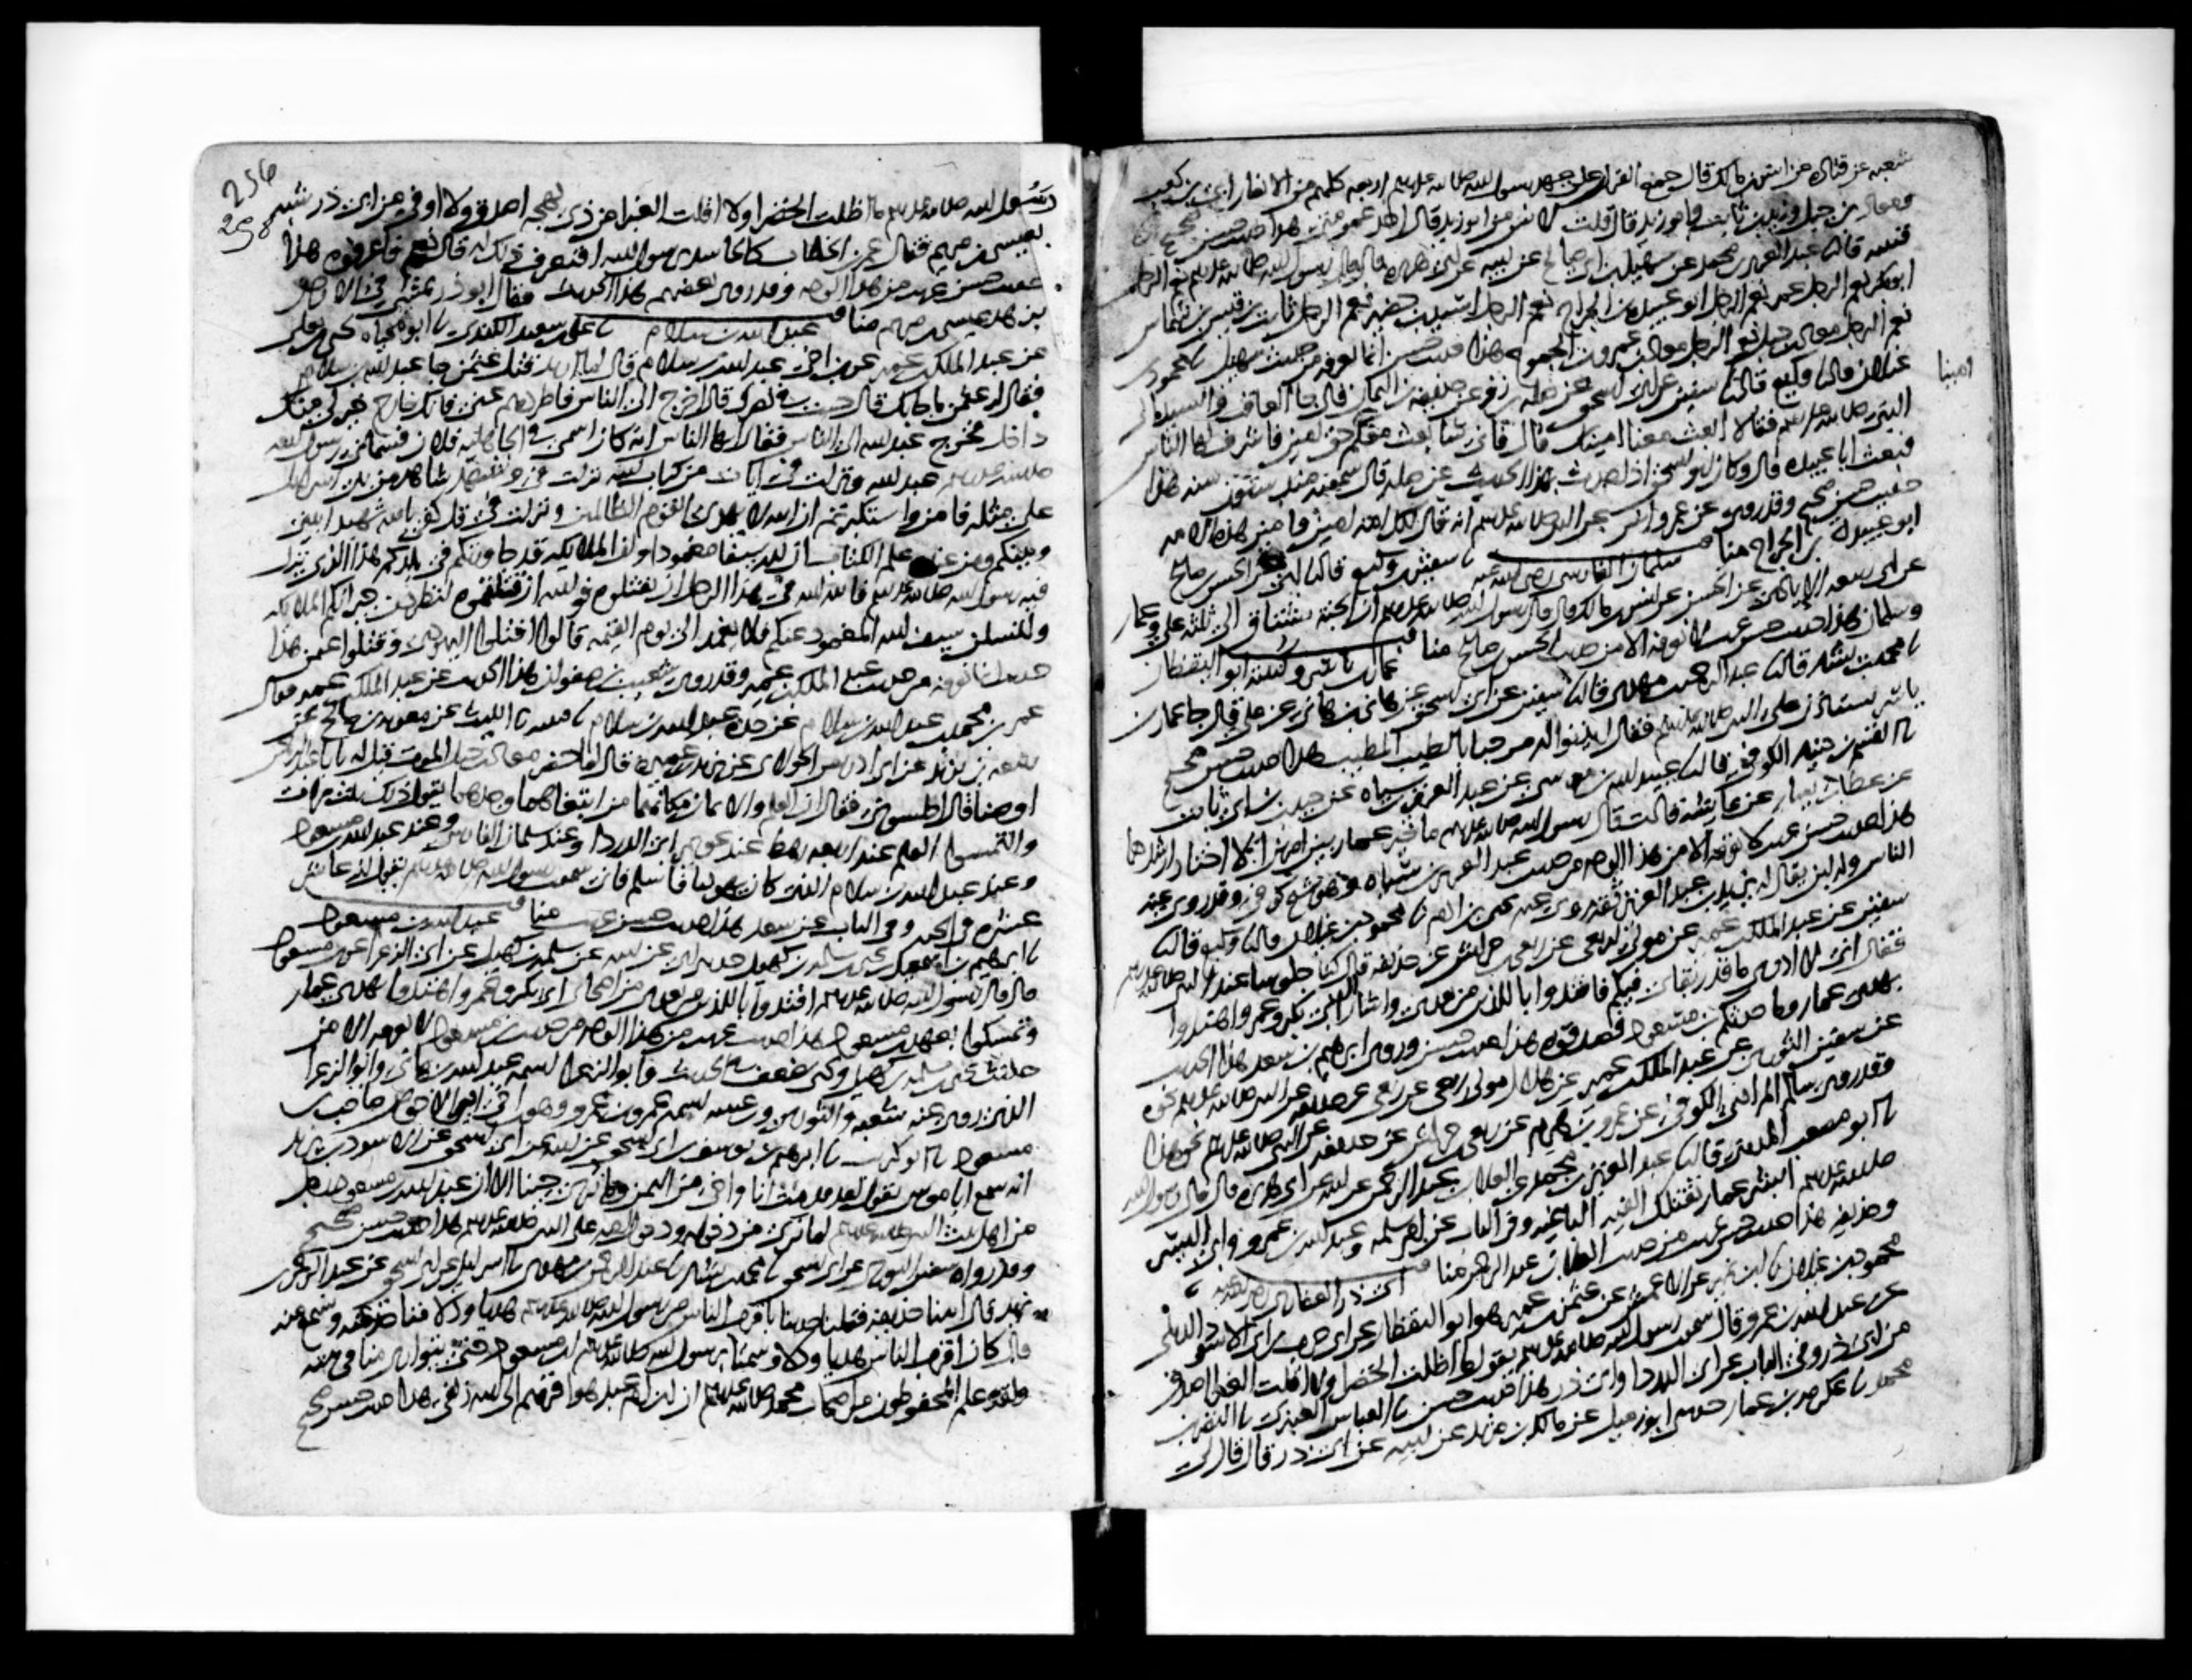 شعبه عن قتاده عن انس بن مالك قال جمع القران على عهد رسول الله صلى الله عليه وسلم اربعه كلهم من الانصار ابي بن كعب
ومعاذ بن جبل وزيد بن ثابت وابو زيد قال قلت لانس من ابو زيد قال احد عمومتي هذا حديث حسن صحيح
قتيبه قال عبد العزيز بن محمد عن سهيل بن ابي صالح عن ابيه عن ابي هريره قال قال رسول الله صلى الله عليه وسلم نعم الرجل
ابو بكر نعم الرجل عمر نعم الرجل ابو عبيده بن الجراح نعم الرجل اسيد بن حضير نعم الرجل ثابت بن قيس بن شماس
نعم الرجل معاذ بن جبل نعم الرجل معاذ بن عمرو بن الجموح هذا حديث حسن انما نعرفه من حديث سهيل محمود بن
غيلان قال وكيع قال سفين عن ابي اسحق عن صله بن زفر عن حذيفه بن اليمان قال جا العاقب والسيد الى
النبي صلى الله عليه وسلم فقالا ابعث معنا امينك قال فاني سابعث معكم حق امين فاشرف لها الناس
امينا
فبعث ابا عبيده قال وكان ابو اسحق اذا حدث بهذا الحديث عن صله قال سمعته منذ ستين سنه هذا
حديث حسن صحيح وقد روي عن عمر وانس عن النبي صلى الله عليه وسلم انه قال لكل امه امين وامين هذه الامه
ابو عبيده بن الجراح مناقب سلمان الفارسي رضي الله عنه سفين بن وكيع قال ابي عن الحسن بن صالح
عن ابي ربيعه الايادي عن الحسن عن انس بن مالك قال قال رسول الله صلى الله عليه وسلم ان الجنه تشتاق الى ثلثه علي وعمار
وسلمان هذا حديث حسن غريب لا نعرفه الا من حديث الحسن بن صالح مناقب عمار بن ياسر وكنيته ابو اليقظان
محمد بن بشار قال عبد الرحمن بن مهدي قال سفين عن ابي اسحق عن هاني بن هاني عن علي قال جا عمار بن
ياسر يستاذن على النبي صلى الله عليه وسلم فقال ايذنوا له مرحبا بالطيب المطيب هذا حديث حسن صحيح
القسم بن دينار الكوفي قال عبيد الله بن موسى عن عبد العزيز بن سياه عن حبيب بن ابي ثابت
عن عطا بن يسار عن عايشه قالت قال رسول الله صلى الله عليه وسلم ما خير عمار بين امرين الا اختار ارشدهما
هذا حديث حسن غريب لا نعرفه الا من هذا الوجه من حديث عبد العزيز بن سياه وهو شيخ كوفي وقد روى عنه
الناس وله ابن يقال له يزيد بن عبد العزيز ثقه روى عنه يحيى بن ادم محمود بن غيلان قال وكيع قال
سفين عن عبد الملك بن عمير عن مولى لربعي عن ربعي بن حراش عن حذيفه قال كنا جلوسا عند النبي صلى الله عليه وسلم
فقال اني لا ادري ما قدر بقاي فيكم فاقتدوا باللذين من بعدي واشار الى ابي بكر وعمر واهتدوا
بهدي عمار وما حدثكم بن مسعود فصدقوه هذا حديث حسن وروى ابرهيم بن سعد هذا الحديث
عن سفين الثوري عن عبد الملك بن عمير عن هلال مولى ربعي عن ربعي عن حذيفه عن النبي صلى الله عليه وسلم نحوه
وقد روى سالم المرادي الكوفي عن عمرو بن هرم عن ربعي بن حراش عن حذيفه عن النبي صلى الله عليه وسلم نحو هذا
ابو مصعب المديني قال عبد العزيز بن محمد عن العلا بن عبد الرحمن عن ابيه عن ابي هريره قال قال رسول الله
صلى الله عليه وسلم ابشر عمار تقتلك الفيه الباغيه وفي الباب عن ام سلمه وعبد الله بن عمرو وابي اليسر
وحذيفه هذا حديث حسن غريب من حديث العلا بن عبد الرحمن مناقب ابي ذر الغفاري رضي الله عنه
محمود بن غيلان ابن نمير عن الاعمش عن عثمن بن عمير هو ابو اليقظان عن ابي حرب بن ابي الاسود الديلي
عن عبد الله بن عمرو قال سمعت رسول الله صلى الله عليه وسلم يقول ما اظلت الخضرا ولا اقلت الغبرا اصدق
من ابي ذر وفي الباب عن ابي الدردا وابي ذر هذا حديث حسن العباس العنبري النضر بن
محمد عكرمه بن عمار حدثني ابو زميل عن مالك بن مرثد عن ابيه عن ابي ذر قال قال لي
256
258
رسول الله صلى الله عليه وسلم ما اظلت الخضرا ولا اقلت الغبرا من ذي لهجه اصدق ولا اوفى من ابي ذر شبه
بعيسى بن مريم فقال عمر بن الخطاب كالحاسد يرسول الله افتعرف ذلك له قال نعم فاعرفوه هذا
حديث حسن غريب من هذا الوجه وقد روى بعضهم هذا الحديث فقال ابو ذر يمشي في الارض
بزهد عيسى بن مريم مناقب عبد الله بن سلام علي بن سعيد الكندي ابو محياه يحيى بن يعلى
عن عبد الملك بن عمير عن بن اخي عبد الله بن سلام قال لما اريد قتل عثمن جا عبد الله بن سلام
فقال له عثمن ما جا بك قال جيت في نصرك قال اخرج الى الناس فاطردهم عني فانك خارج خير لي منك
داخل فخرج عبد الله الى الناس فقال ايها الناس انه كان اسمي في الجاهليه فلان فسماني رسول الله
صلى الله عليه وسلم عبد الله ونزلت في ايات من كتاب الله نزلت في وشهد شاهد من بني اسرايل
على مثله فامن واستكبرتم ان الله لا يهدي القوم الظالمين ونزلت في قل كفى بالله شهيدا بيني
وبينكم ومن عنده علم الكتاب ان لله سيفا مغمودا وان الملايكه قد جاورتكم في بلدكم هذا الذي نزل
فيه رسول الله صلى الله عليه وسلم فالله الله في هذا الرجل ان تقتلوه فوالله ان قتلتموه لتطردن جيرانكم الملايكه
ولتسلن سيف الله المغمود عنكم فلا يغمد الى يوم القيمه قالوا اقتلوا اليهودي وقتلوا عثمن هذا
حديث انما نعرفه من حديث عبد الملك بن عمير وقد روى شعيب بن صفوان هذا الحديث عن عبد الملك بن عمير فقال
عمر بن محمد بن عبد الله بن سلام عن جده عبد الله بن سلام قتيبه الليث عن معويه بن صالح عن
ربيعه بن يزيد عن ابي ادريس الخولاني عن يزيد بن عميره قال لما حضر معاذ بن جبل الموت قيل له يابا عبد الرحمن
اوصنا قال اجلسوني فقال ان العلم والايمان مكانهما من ابتغاهما وجدهما يقول ذلك ثلث مرات
والتمسوا العلم عند اربعه رهط عند عويمر ابي الدردا وعند سلمان الفارسي وعند عبد الله بن مسعود
وعند عبد الله بن سلام الذي كان يهوديا فاسلم فاني سمعت رسول الله صلى الله عليه وسلم يقول انه عاشر
عشره في الجنه وفي الباب عن سعد هذا حديث حسن غريب مناقب عبد الله بن مسعود
ابرهيم بن اسمعيل بن يحيى بن سلمه بن كهيل حدثني ابي عن ابيه عن سلمه بن كهيل عن ابي الزعرا عن بن مسعود
قال قال رسول الله صلى الله عليه وسلم اقتدوا باللذين من بعدي من اصحابي ابي بكر وعمر واهتدوا بهدي عمار
وتمسكوا بعهد بن مسعود هذا حديث غريب من هذا الوجه من حديث بن مسعود لا نعرفه الا من
حديث يحيى بن سلمه بن كهيل ويحيى يضعف في الحديث وابو الزعرا اسمه عبد الله بن هاني وابو الزعرا
الذي روى عنه شعبه والثوري وبن عيينه اسمه عمرو بن عمرو وهو بن اخي ابي الاحوص صاحب بن
مسعود ابو كريب ابرهيم بن يوسف بن ابي اسحق عن ابيه عن ابي اسحق عن الاسود بن يزيد
انه سمع ابا موسى يقول لقد قدمت انا واخي من اليمن وما نرى حينا الا ان عبد الله بن مسعود رجل
من اهل بيت النبي صلى الله عليه وسلم لما نرى من دخوله ودخول امه على النبي صلى الله عليه وسلم هذا حديث حسن صحيح
وقد رواه سفين الثوري عن ابي اسحق محمد بن بشار عبد الرحمن بن مهدي اسرايل عن ابي اسحق عن عبد الرحمن بن
يزيد قال اتينا حذيفه فقلنا حدثنا باقرب الناس من رسول الله صلى الله عليه وسلم هديا ودلا فناخذ عنه ونسمع منه
قال كان اقرب الناس هديا ودلا وسمتا برسول الله صلى الله عليه وسلم بن مسعود حتى يتوارى منا في بيته
ولقد علم المحفوظون من اصحاب محمد صلى الله عليه وسلم ان بن ام عبد هو اقربهم الى الله زلفى هذا حديث حسن صحيح